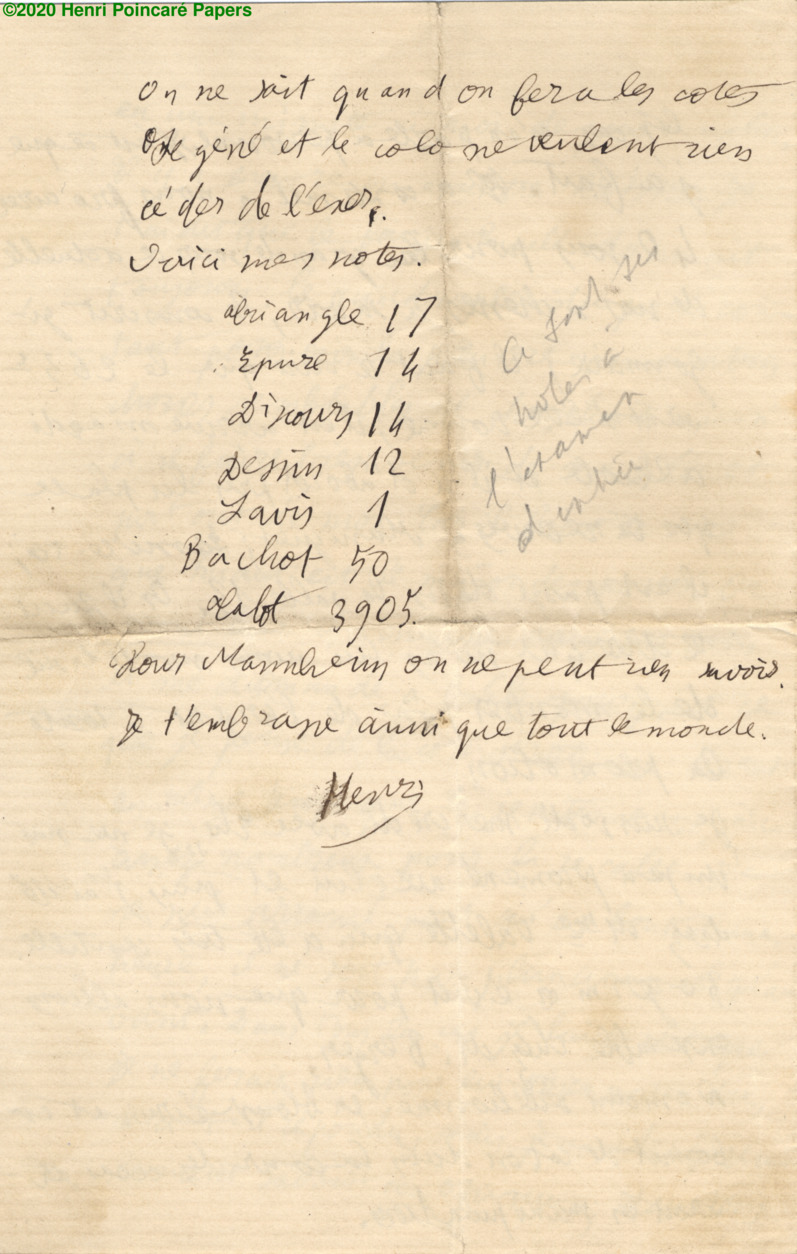 ©2020 Henri Poincaré Papers
On ne sait quand on fera les cotes
le géné et le colo ne veulent rien
céder de l'exer.
Voici mes notes.
triangle 17
Epure 14
Discours 14
Dessin 12
Lavis 1
Bachot 50
3905.
Pour Mannheim on ne peut rien savoir.
je t'embrasse ainsi que tout le monde.
Henri
Ce sont ses
notes à
l'examen
d'entrée